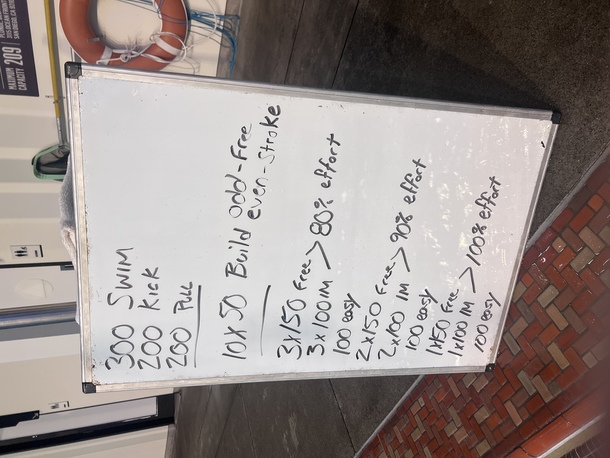 300 SWIM
200 Kick
200 Pull
10x50 Build odd-Free
even-Stroke
3x150 Free > 80% effort
3x100 IM
100 easy
2x150 Free > 90% effort
2x100 IM
100 easy
1x150 Free > 100% effort
1x100 IM
100 easy
MAXIMUM
CAPACITY 209